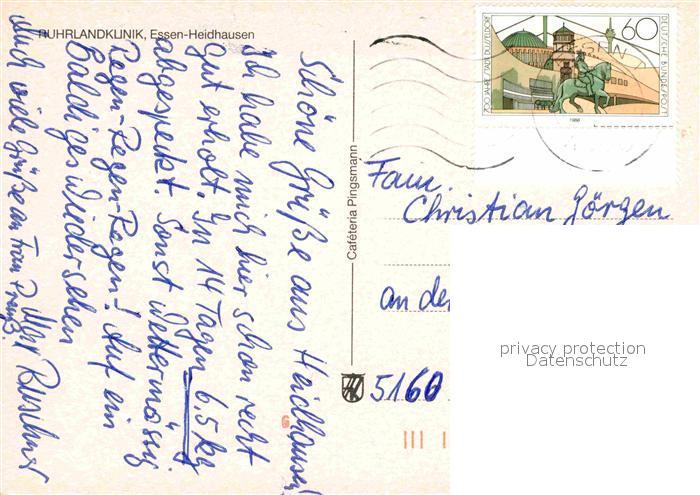 RUHRLANDKLINIK, Essen-Heidhausen
Schöne Grüße aus Heidhausen!
Ich habe mich hier schon recht
gut erholt. In 14 Tagen 6,5 kg
abgespeckt. Sonst Wettermässig
Regen-Regen-Regen-! Auf ein
Baldiges Wiedersehen
Auch viele Grüße an Frau
Caféteria Pingsmann
700 JAHRE STADT DÜSSELDORF
60
DEUTSCHE BUNDESPOST
1988
ESSEN
Fam.
Christian Görgen
an der
5160
privacy protection
Datenschutz